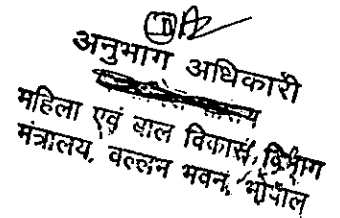 अनुभाग अधिकारी
महिला एवं बाल विकास, विभाग
मंत्रालय, वल्लन भवन, भोपाल